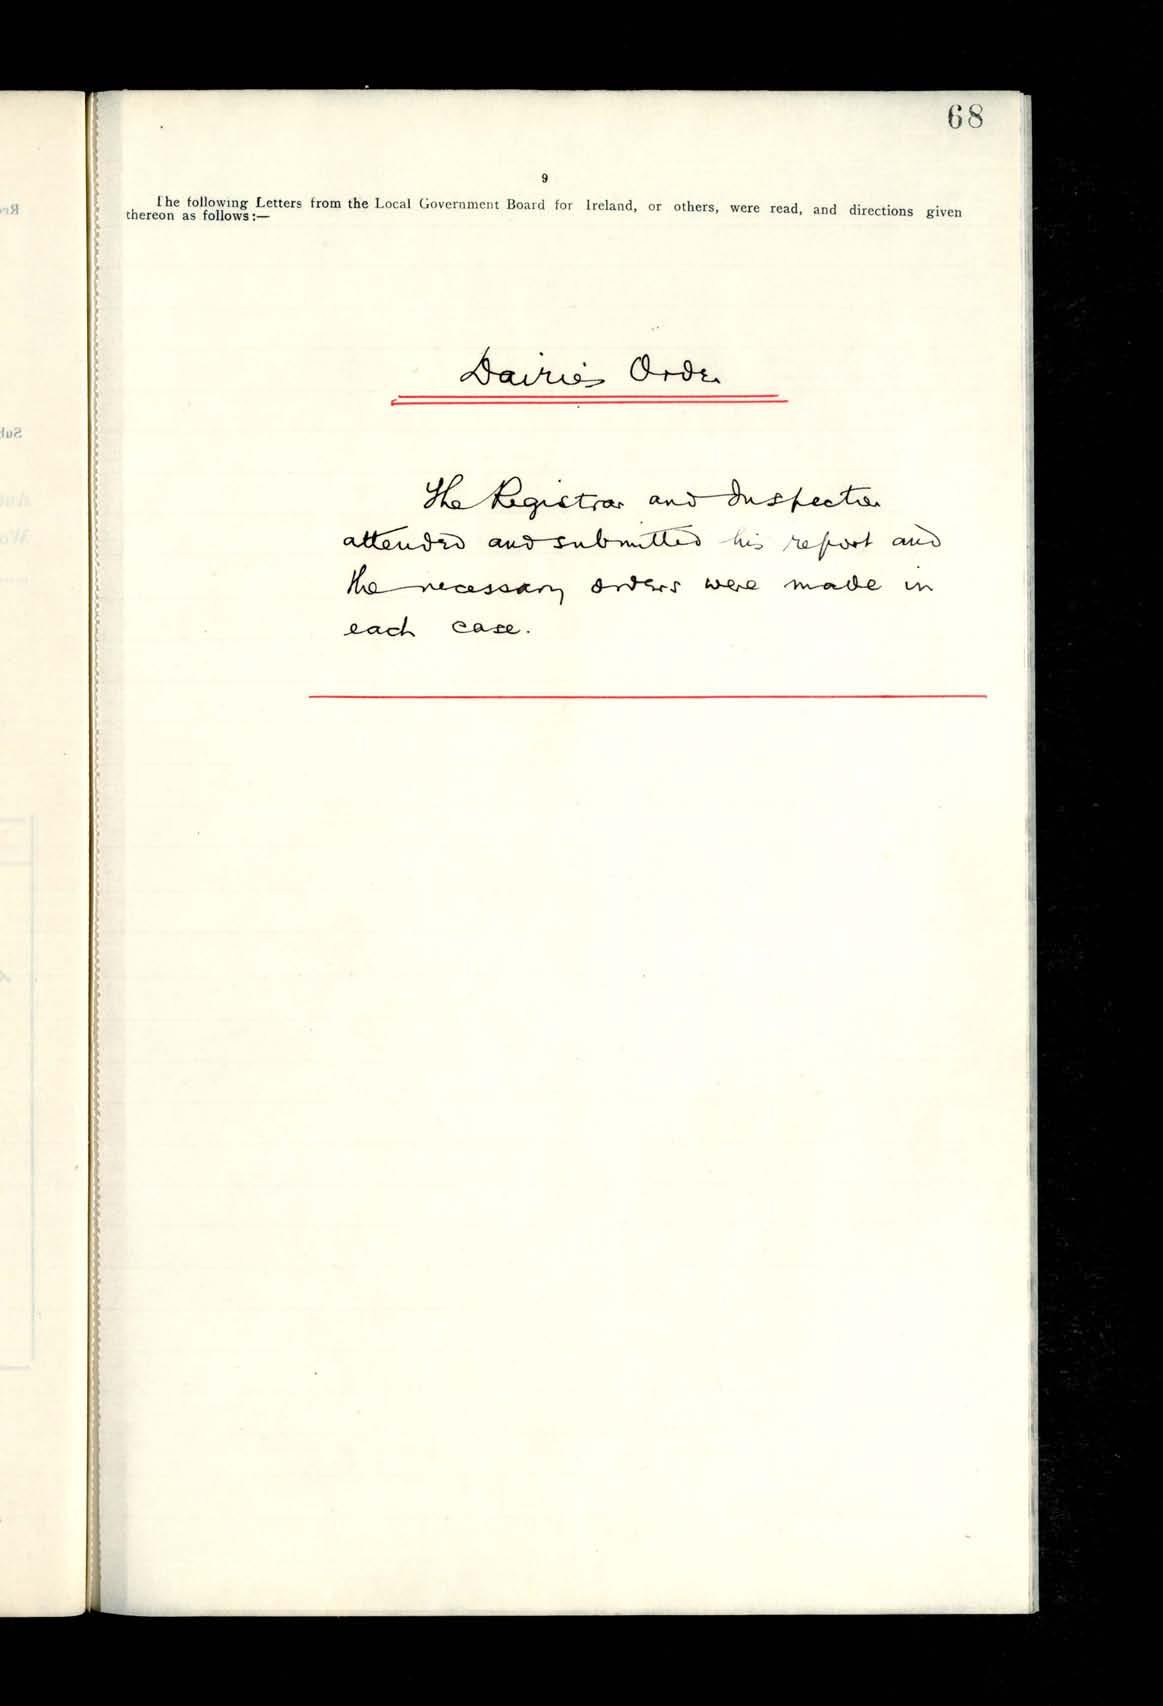 68
9
The following Letters from the Local Government Board for Ireland, or others, were read, and directions given
thereon as follows:—
Dairies Order
The Registrar and Inspector
attended and submitted his report and
the necessary orders were made in
each case.